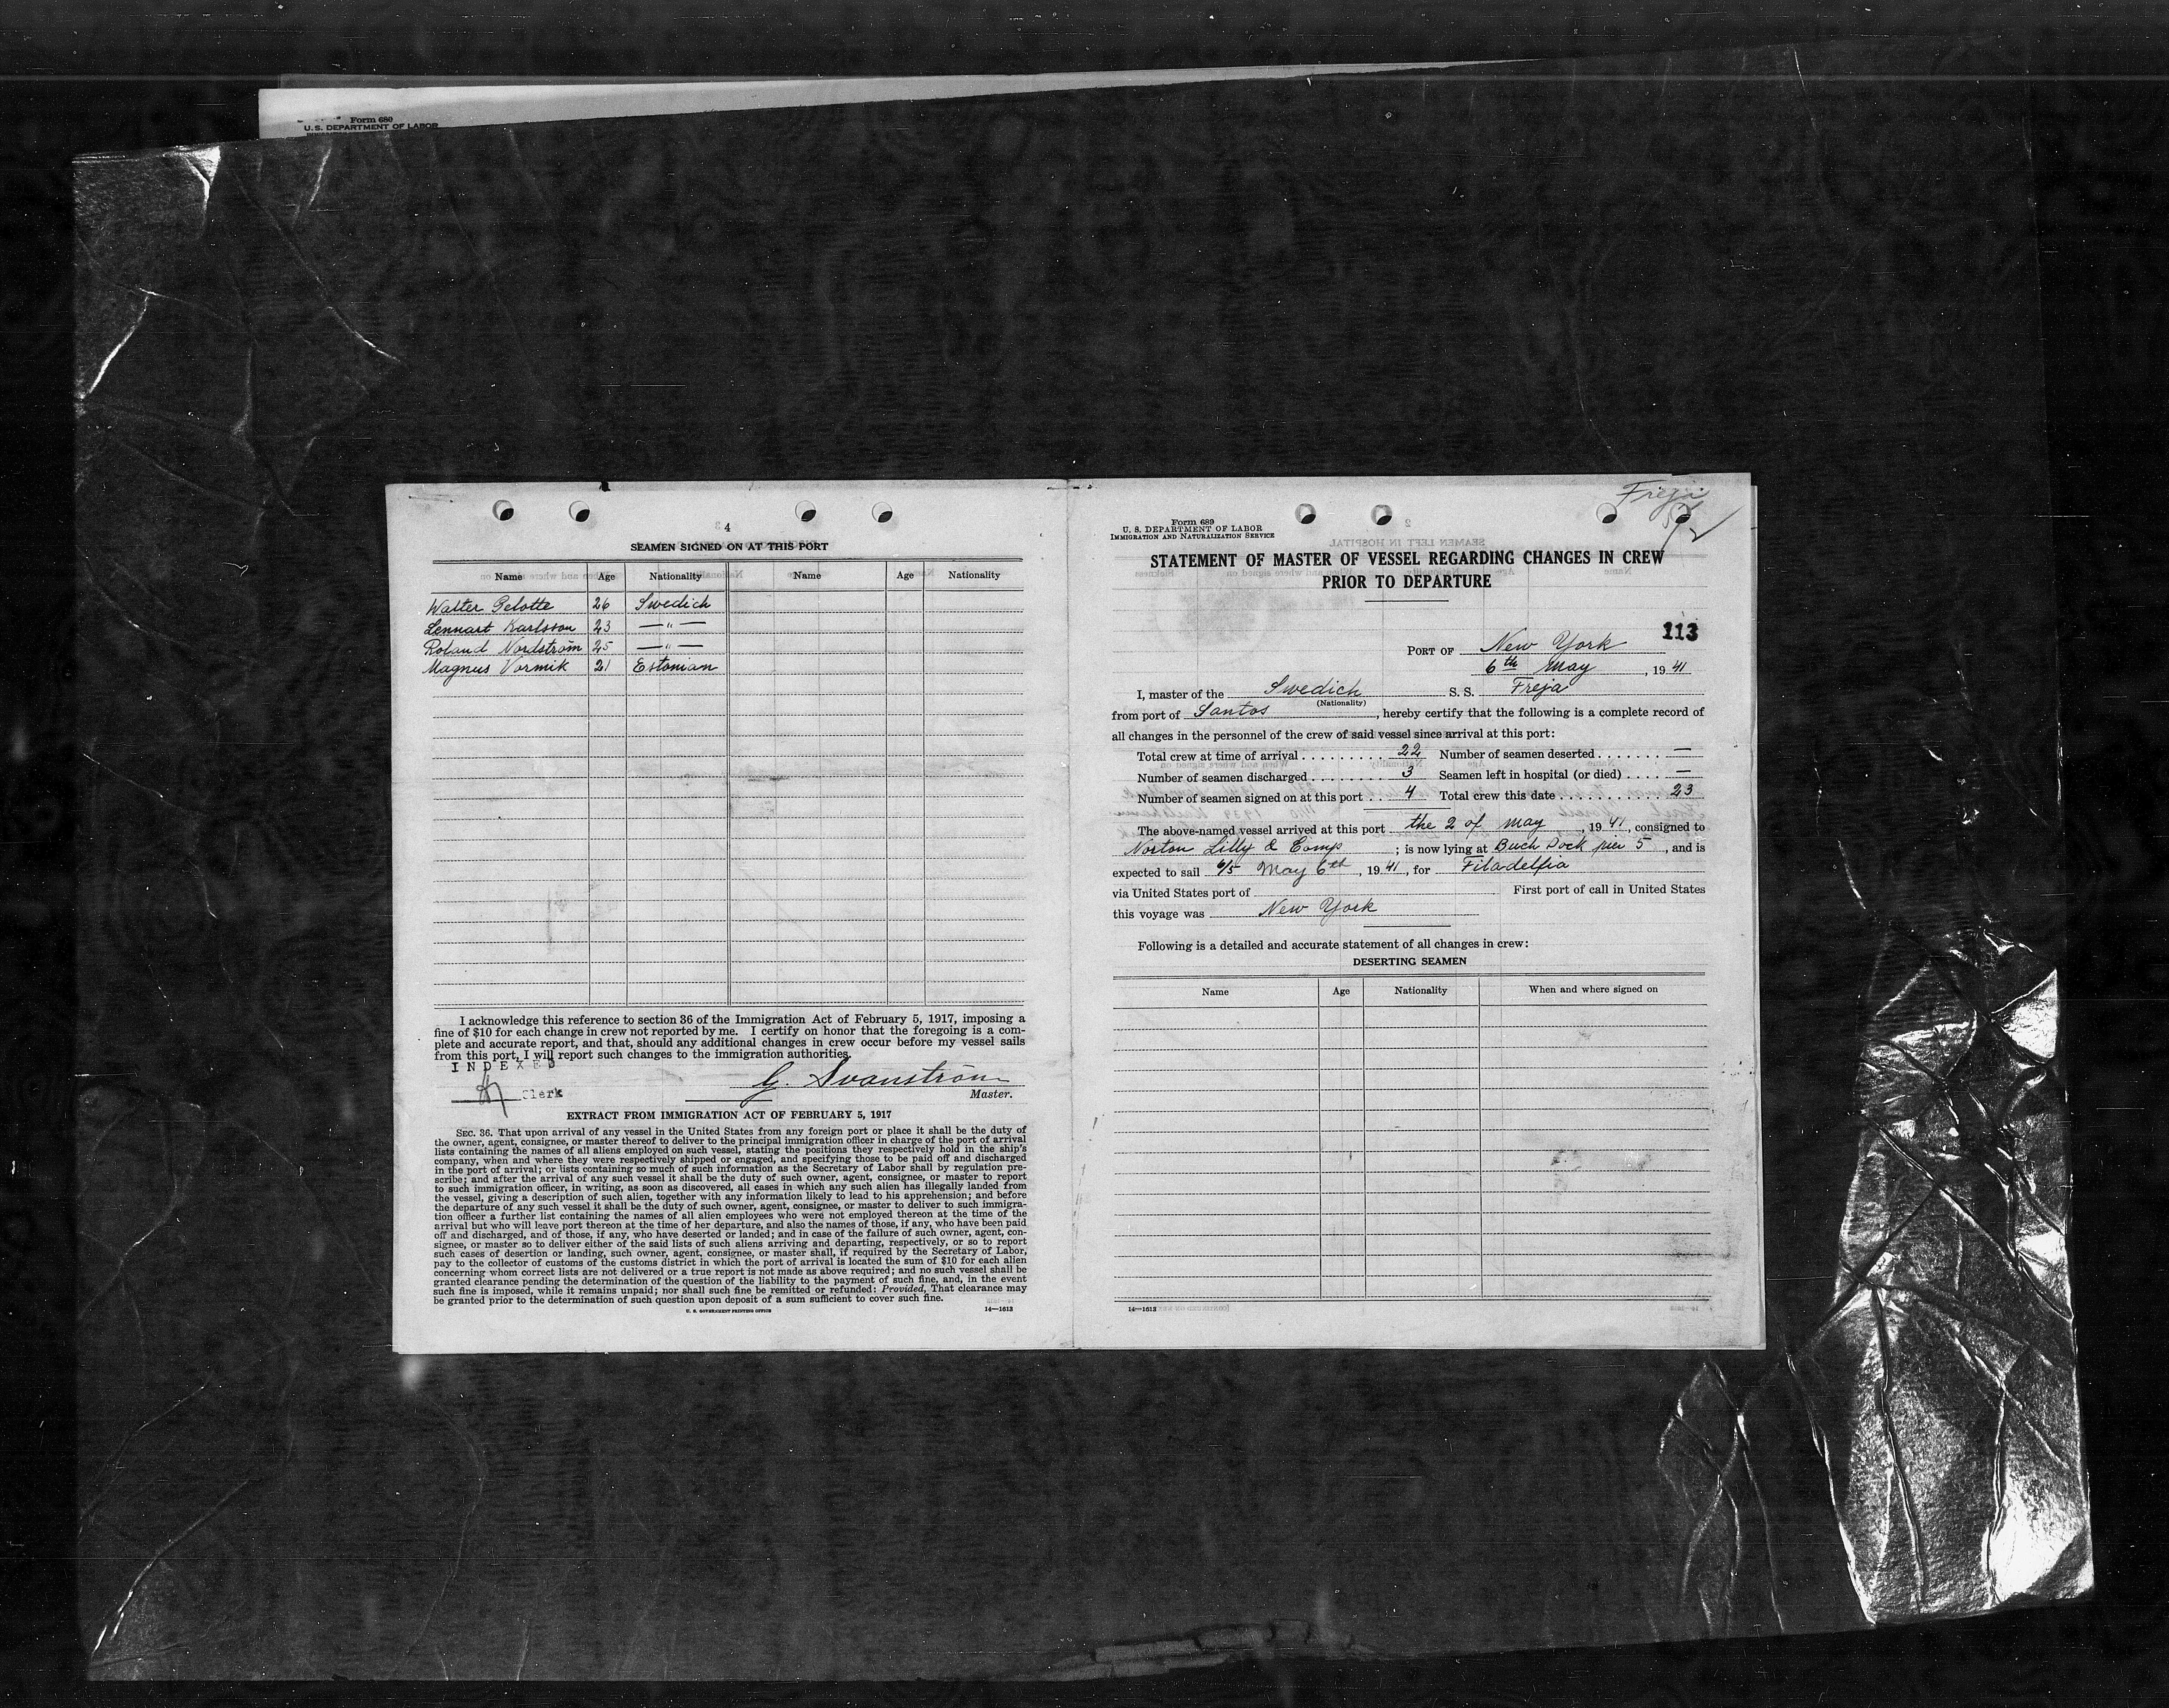 Form 689
U. S. DEPARTMENT OF LABOR
4
SEAMEN SIGNED ON AT THIS PORT
Name Age Nationality Name Age Nationality
Walter Gelotte 26 Swedich
Lennart Karlsson 23 — " —
Roland Nordström 25 — " —
Magnus Vormik 21 Estonian
I acknowledge this reference to section 36 of the Immigration Act of February 5, 1917, imposing a
fine of $10 for each change in crew not reported by me. I certify on honor that the foregoing is a com-
plete and accurate report, and that, should any additional changes in crew occur before my vessel sails
from this port, I will report such changes to the immigration authorities.
INDEXED
G. Svanström
Clerk
Master.
EXTRACT FROM IMMIGRATION ACT OF FEBRUARY 5, 1917
SEC. 36. That upon arrival of any vessel in the United States from any foreign port or place it shall be the duty of
the owner, agent, consignee, or master thereof to deliver to the principal immigration officer in charge of the port of arrival
lists containing the names of all aliens employed on such vessel, stating the positions they respectively hold in the ship's
company, when and where they were respectively shipped or engaged, and specifying those to be paid off and discharged
in the port of arrival; or lists containing so much of such information as the Secretary of Labor shall by regulation pre-
scribe; and after the arrival of any such vessel it shall be the duty of such owner, agent, consignee, or master to report
to such immigration officer, in writing, as soon as discovered, all cases in which any such alien has illegally landed from
the vessel, giving a description of such alien, together with any information likely to lead to his apprehension; and before
the departure of any such vessel it shall be the duty of such owner, agent, consignee, or master to deliver to such immigra-
tion officer a further list containing the names of all alien employees who were not employed thereon at the time of the
arrival but who will leave port thereon at the time of her departure, and also the names of those, if any, who have been paid
off and discharged, and of those, if any, who have deserted or landed; and in case of the failure of such owner, agent, con-
signee, or master so to deliver either of the said lists of such aliens arriving and departing, respectively, or so to report
such cases of desertion or landing, such owner, agent, consignee, or master shall, if required by the Secretary of Labor,
pay to the collector of customs of the customs district in which the port of arrival is located the sum of $10 for each alien
concerning whom correct lists are not delivered or a true report is not made as above required; and no such vessel shall be
granted clearance pending the determination of the question of the liability to the payment of such fine, and, in the event
such fine is imposed, while it remains unpaid; nor shall such fine be remitted or refunded: Provided, That clearance may
be granted prior to the determination of such question upon deposit of a sum sufficient to cover such fine.
U. S. GOVERNMENT PRINTING OFFICE 14—1613
Freja
Form 689
U. S. DEPARTMENT OF LABOR
IMMIGRATION AND NATURALIZATION SERVICE
STATEMENT OF MASTER OF VESSEL REGARDING CHANGES IN CREW
PRIOR TO DEPARTURE
113
PORT OF New York
6th May, 1941
I, master of the Swedich S. S. Freja
(Nationality)
from port of Santos, hereby certify that the following is a complete record of
all changes in the personnel of the crew of said vessel since arrival at this port:
Total crew at time of arrival 22 Number of seamen deserted —
Number of seamen discharged 3 Seamen left in hospital (or died) —
Number of seamen signed on at this port 4 Total crew this date 23
The above-named vessel arrived at this port the 2 of May, 1941, consigned to
Norton Lilly & Comp; is now lying at Buch Dock pier 5, and is
expected to sail 6/5 May 6th, 1941, for Filadelfia
via United States port of First port of call in United States
this voyage was New York
Following is a detailed and accurate statement of all changes in crew:
DESERTING SEAMEN
Name Age Nationality When and where signed on
14—1613